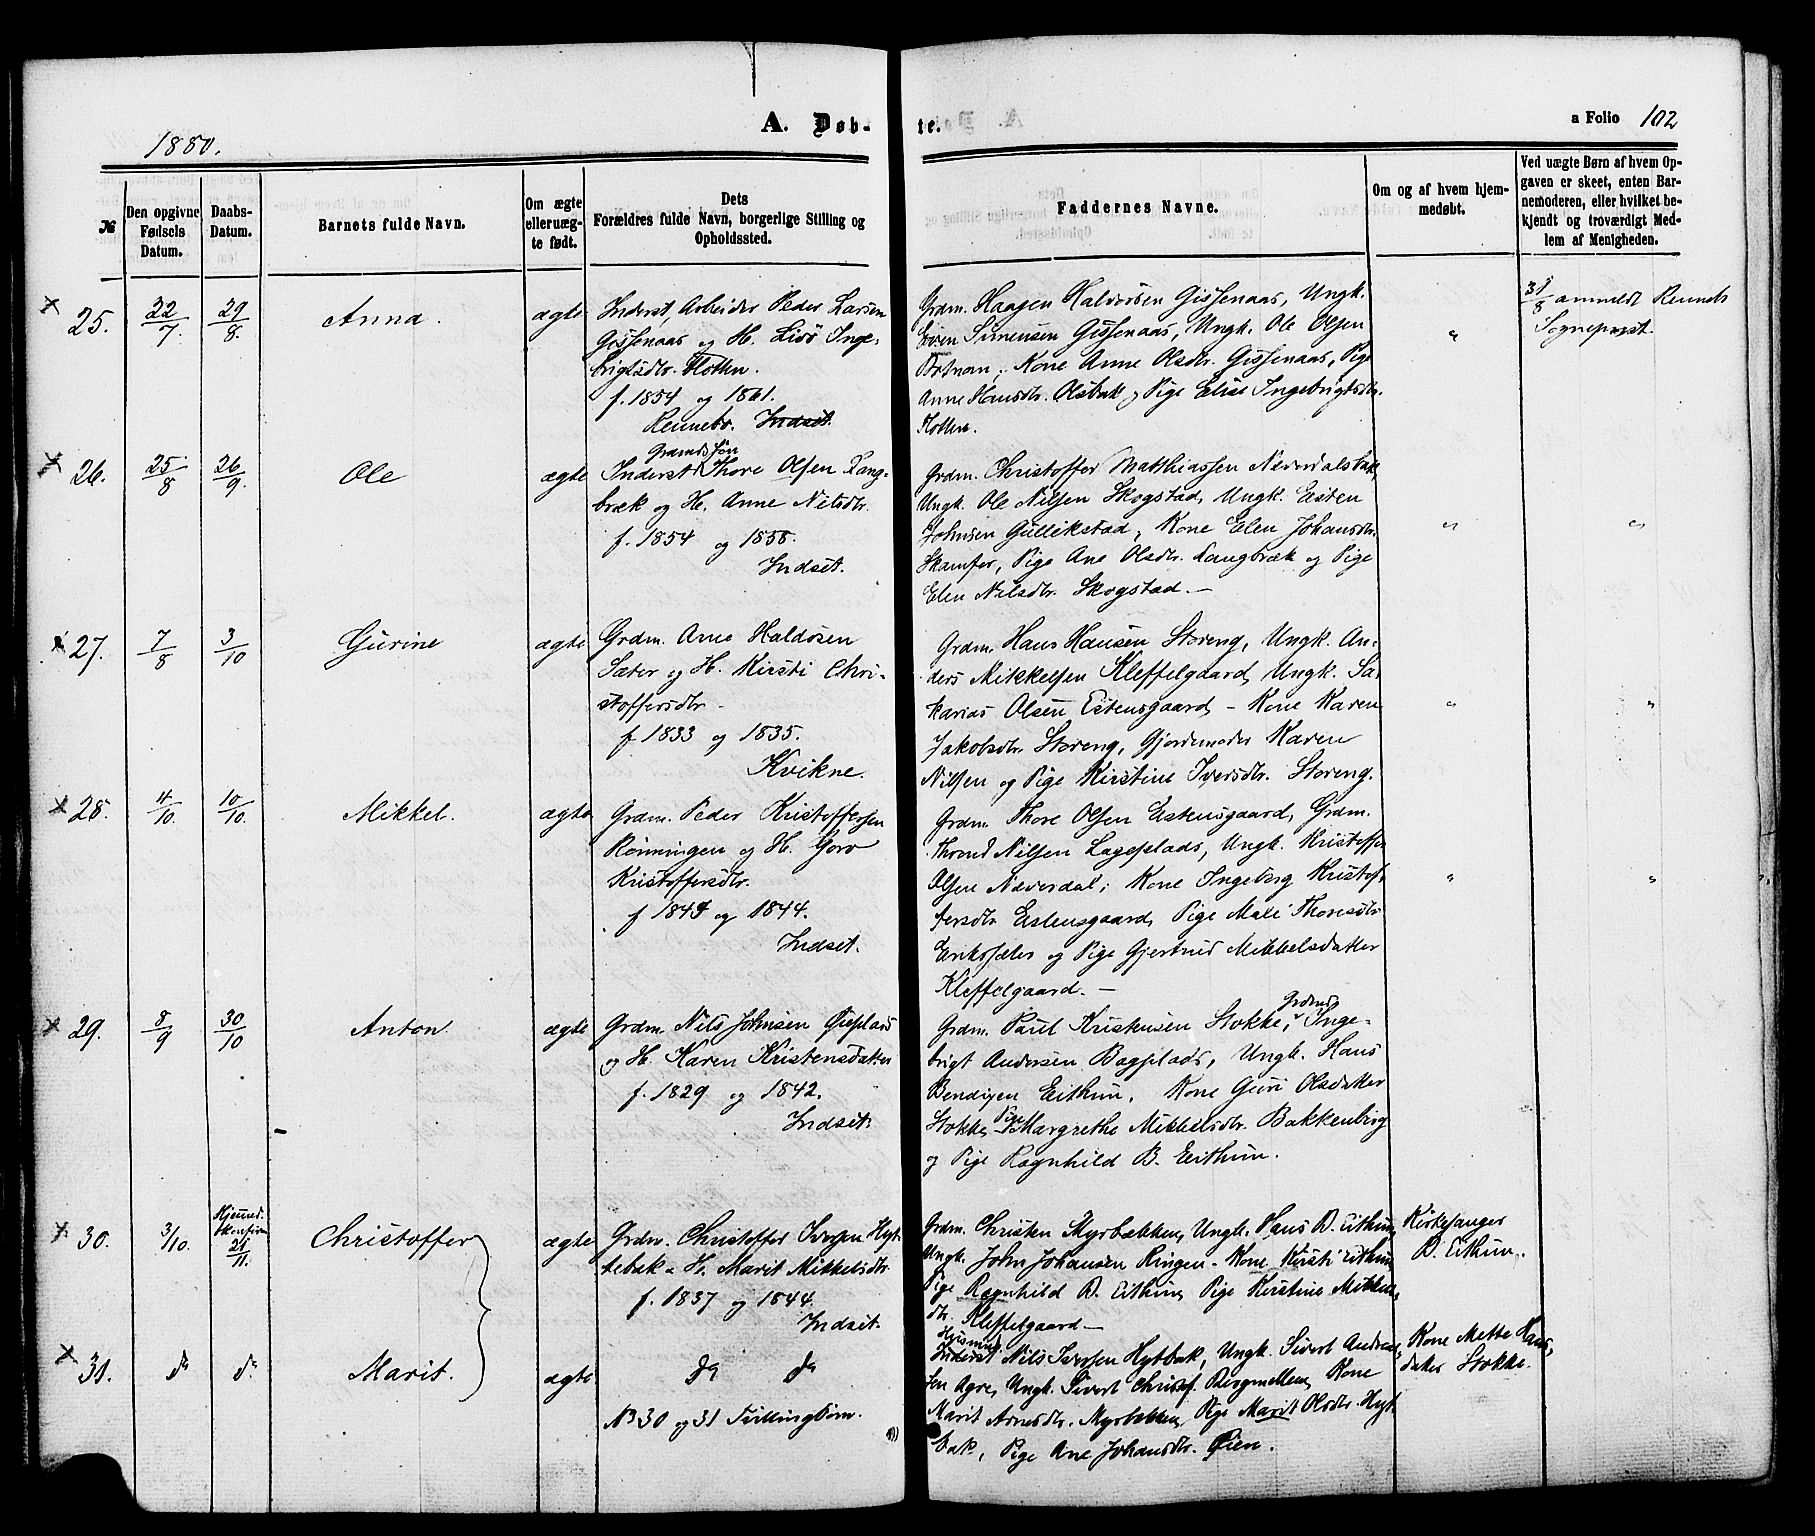 1880.
A. Døb-
te.
a Folio 102
№
Den opgivne Fødsels Datum.
Daabs-Datum.
Barnets fulde Navn.
Om ægte eller uæg-te født.
Dets Forældres fulde Navn, borgerlige Stilling og Opholdssted.
Faddernes Navne.
Om og af hvem hjem-medøbt.
Ved uægte Børn af hvem Op-gaven er skeet, enten Bar-nemoderen, eller hvilket be-kjendt og troværdigt Med-lem af Menigheden.
25.
22/7.
29/8.
Anna.
ægte
Inderst, Arbeider Peder Larsen
Gissenaas og H. Livø Inge-
brigtsdtr. Flotten.
f. 1854 og 1861.
Rennebo. Indset.
Grdm. Haagen Haldorsen Gissenaas, Ungk.
Simensen Gissenaas, Ungk. Ole Olsen
Kone Anne Olsdtr. Gissenaas, Pige
Anne Hansdtr. Olsbak, Pige Elise Ingebrigtsdtr.
Flotten.
"
31/8 anmeldt Rennebo
Sogneprest.
26.
25/8
26/9.
Ole
ægte
Graendsføn
Inderst Thore Olsen Lang-
bræk og H. Anne Nilsdtr.
f. 1854 og 1858.
Indset.
Grdm. Christoffer Matthiassen Neverdalsbak,
Ungk. Ole Nilsen Skogstad, Ungk. Esten
Johnsen Gullikstad, Kone Elen Johansdtr.
Skamfer, Pige Ane Olsdtr. Langbræk og Pige
Elen Nilsdtr. Skogstad. —
"
"
27.
7/8
3/10
Gurine
ægte
Grdm. Arne Haldosen
Sæter og H. Kirsti Chri-
stoffersdtr.
f. 1833 og 1835.
Kvikne.
Grdm. Hans Hansen Storeng, Ungk. An-
ders Mikkelsen Kleffelgaard, Ungk. Sa-
karias Olsen Estensgaard, - Kone Karen
Jakobsdtr. Storeng, Gjordemoder Karen
Nilsen og Pige Kirstine Iversdtr. Storeng.
"
"
28.
4/10.
10/10.
Mikkel.
ægte
Grdm. Peder Kristoffersen
Rønningen og H. Goro
Kristoffersdtr.
f 1845 og 1844.
Indset.
Grdm. Thore Olsen Estensgaard, Grdm.
Thrond Nilsen Lageplads, Ungk. Kristoffer
Olsen Næverdal; Kone Ingeborg Kristof-
fersdtr Estensgaard, Pige Mali Thoresdtr
Eriksfæter og Pige Gjertrud Mikkelsdatter
Kleffelgaard. —
"
"
29.
8/9
30/10
Anton.
ægte
Grdm. Nils Johnsen Øieplads
og H. Karen Kristensdatter
f. 1829 og 1842.
Indset.
Grdm. Paul Kristensen Stokke, Grdmd Inge-
brigt Andersen Bagplads, Ungk. Hans
Bendixen Eithun, Kone Guri Olsdatter
Stokke, Pige Margrethe Mikkelsdtr. Bakkenberg
og Pige Ragnhild B. Eithun.
30.
3/10.
Hjemmed.
21/11.
Christoffer
ægte
Grdm. Christoffer Iversen Hyt-
tebak & H. Marit Mikkelsdtr
f. 1837 og 1844.
Indset.
Grdm. Christen Myrbækken, Ungk. Hans B. Eithun,
Ungk. John Johansen Ringen - Kone Kirsti Eithun
Pige Ragnhild B. Eithun, Pige Kirstine Mikkels-
dtr. Kleffelgaard —
Kirkesanger
B. Eithun.
31.
do
do
Marit.
ægte
do do
No 30 og 31 Tvillingbørn.
Inderst Nils Iversen Hytbak, Ungk. Sivert Andreas-
sen Agre, Ungk. Sivert Christof. Bergmellem, Kone
Marit Arnesdtr. Myrbækken, Pige Marit Olsdtr. Hyt-
bak, Pige Ane Johansdtr. Øien.
Kone Mette Hans-
datter Stokke.